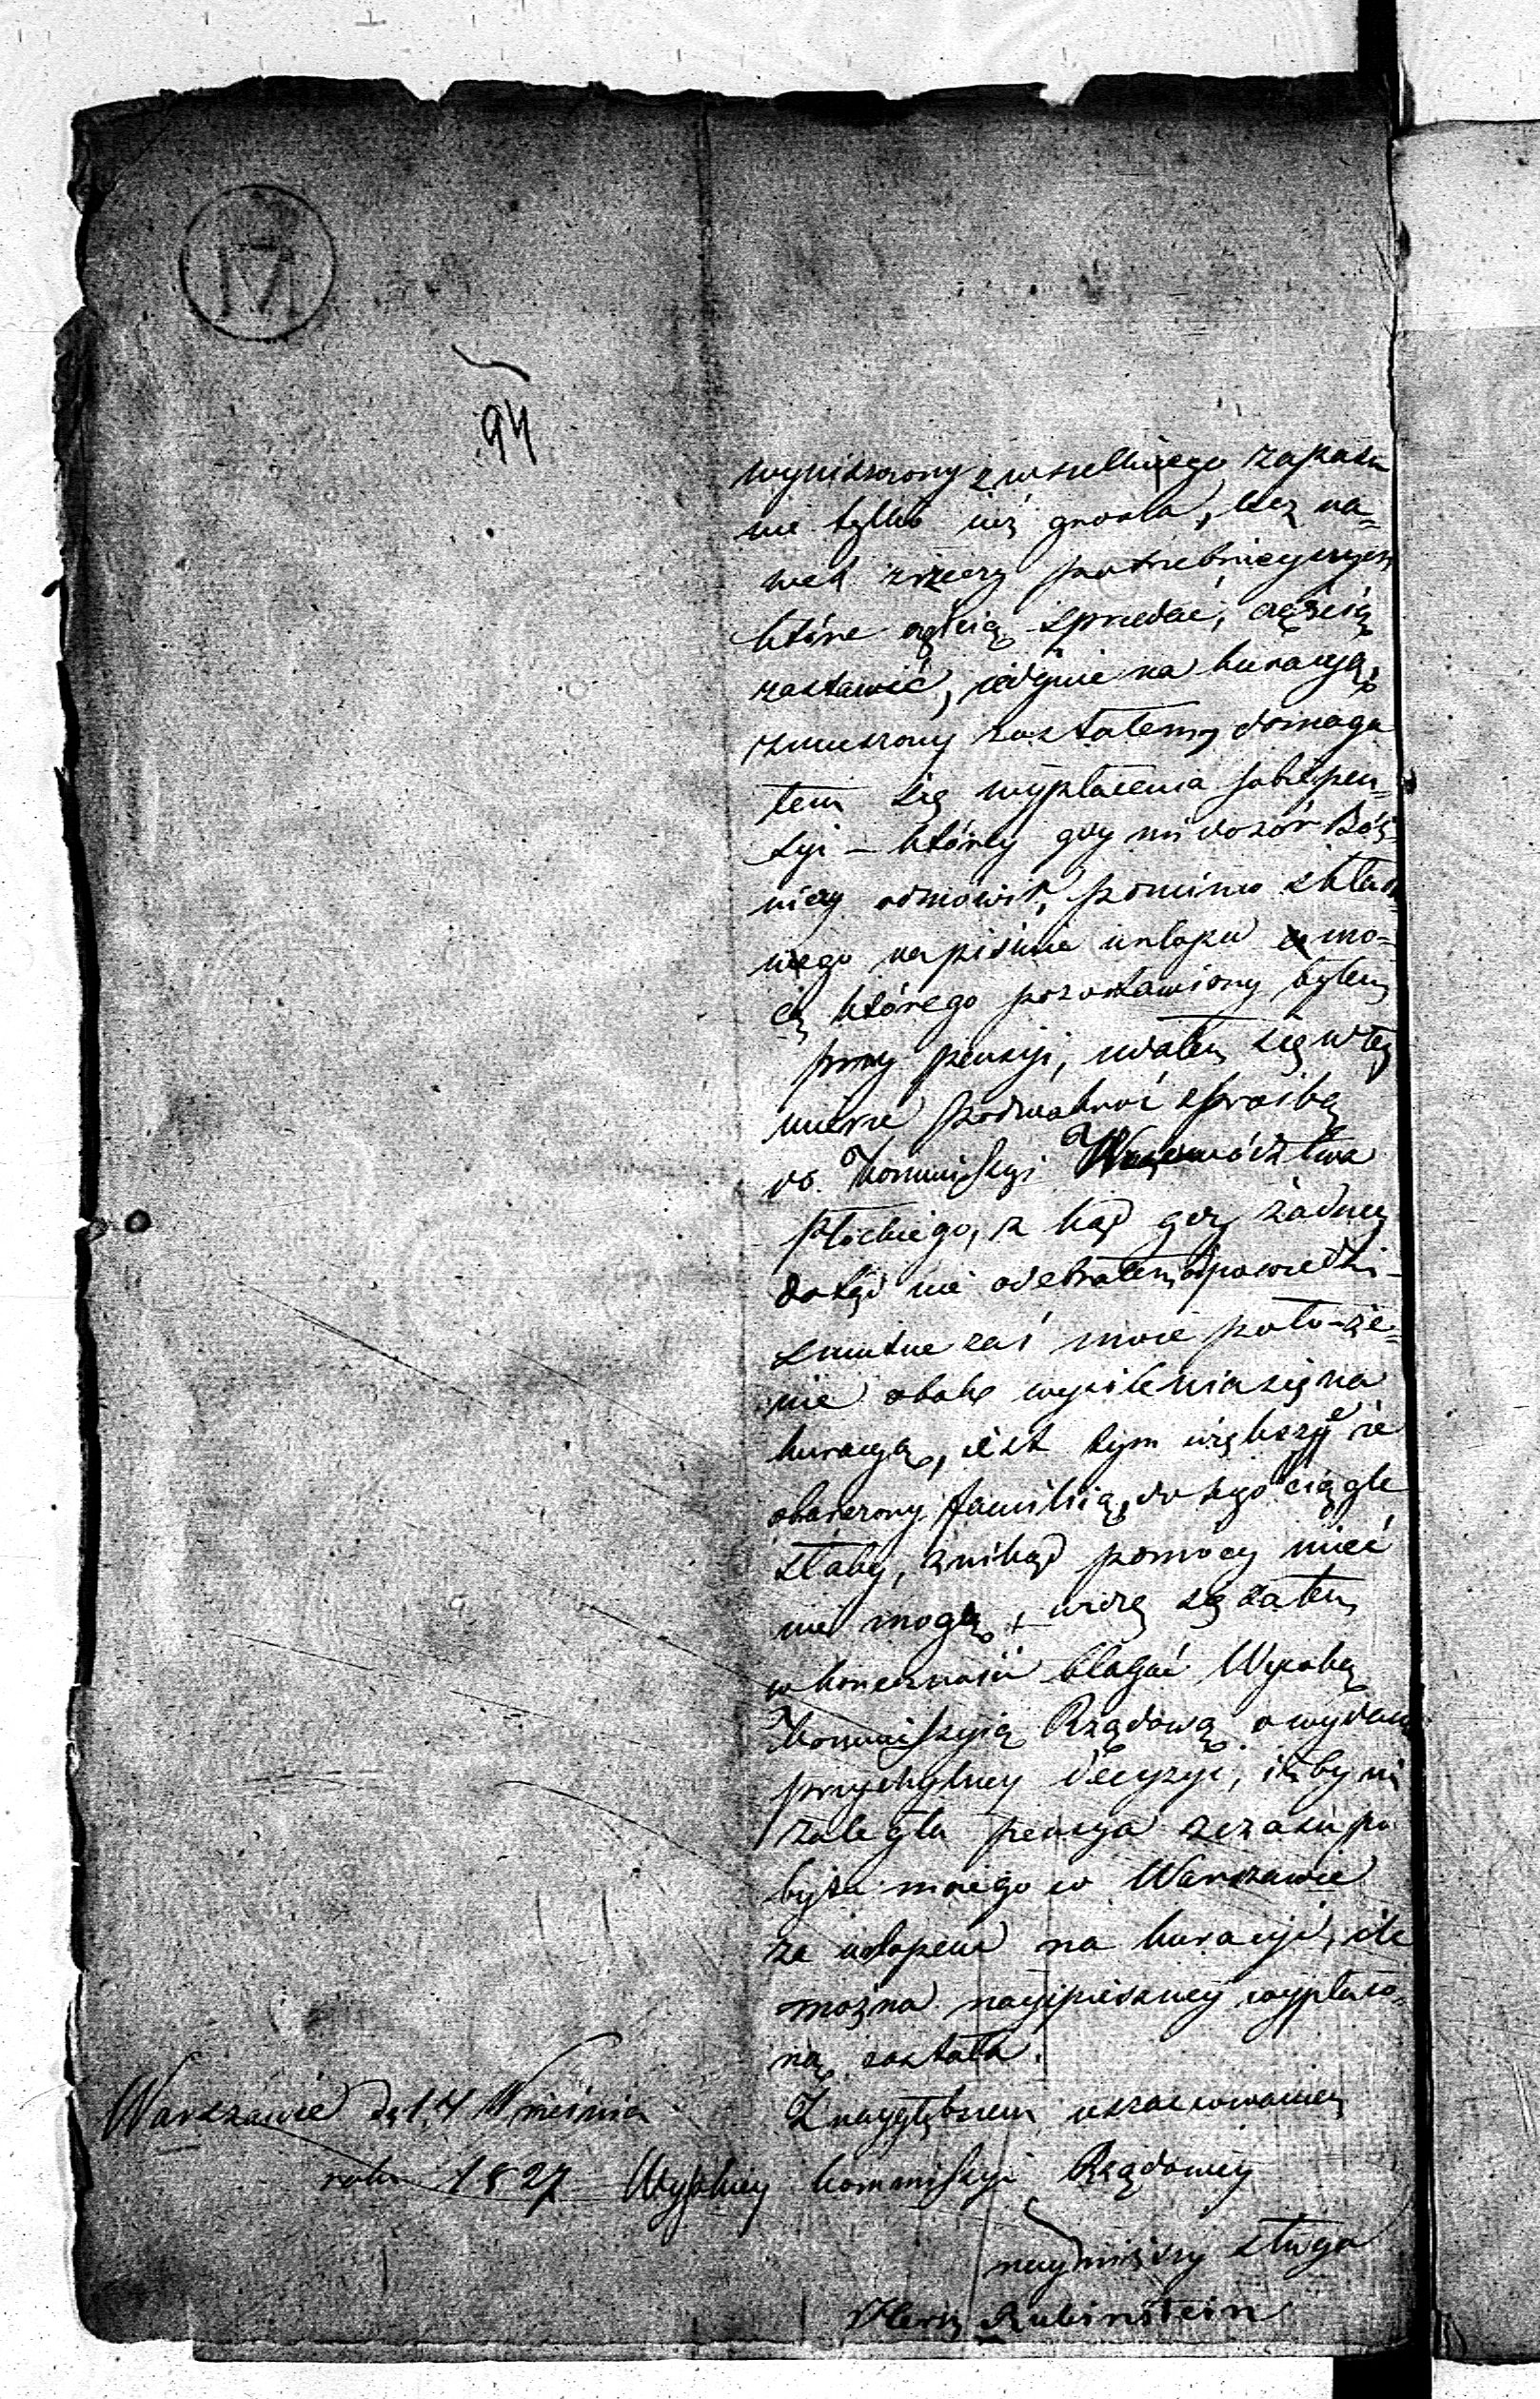 M
94
wyniszczony z wszelkiego zapasu
nie tylko iuż grosza, lecz na=
wet z rzeczy potrzebnieyszych
które częścią sprzedać, częścią
zastawić, iedynie na kuracyą,
zmuszony zostałem, domaga
łem się wypłacenia sobie pen=
syi – którey gdy mi dozór Bóż=
niczy odmówił, pomimo
nego na piśmie urlopu mo=
cą którego pozostawiony byłem
przy pensyi, udałem się w tey
mierze podwakroć z prośbą
do Kommissyi Woiewództwa
Płóckiego, z kąd gdy żadney
dotąd nie odebrałem odpowiedzi –
smutne zaś moie poło-że=
nie obok wysilenia się na
kuracyą, iest tym większe że
obarczony familią, do tego ciągle
słaby, z nikąd pomocy mieć
nie mogę, widzę się zatem
w konieczności błagać Wysoką
Kommissyią Rządową o wydanie
przychylney decyzyi, iżby mi
zaległa pensya z czasu po
bytu moiego w Warszawie
za urlopem na kuracyi, ile
można nayspieszniey wypłaco=
ną została.
Z naygłębszem uszanowaniem
Warszawie d. 14 Września
roku 1827 Wysokiey Kommissyi Rządowey
nayniższy sługa
Hersz Rubinstein